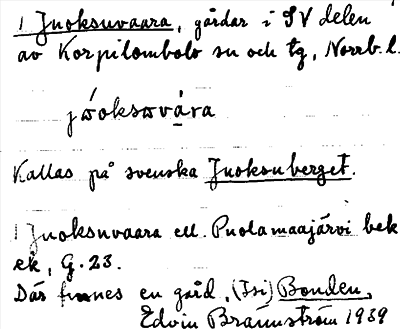 1 Juoksuvaara, gårdar i SV delen
av Korpilombolo sn och tg, Norrb. l.
Kallas på svenska Juoksuberget.
1 Juoksuvaara ell. Puolamaajärvi bek
ek, G. 23.
Där finnes en gård, (Isi) Bonden,
Edvin Brännström 1939